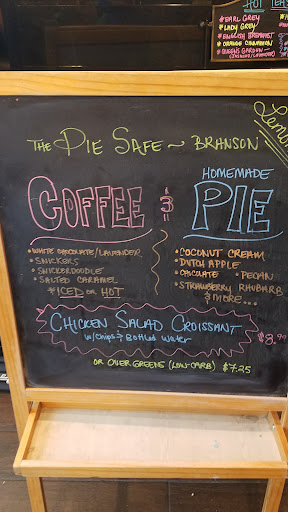 HOT TEAS
*EARL GREY
*LADY GREY
*ENGLISH BREAKFAST
*ORANGE CINNAMON
*QUEENS GARDEN
THE PIE SAFE ~ BRANSON
COFFEE &
HOMEMADE
PIE
• WHITE CHOCOLATE/LAVENDER
• SNICKERS
• SNICKERDOODLE
• SALTED CARAMEL
*ICED OR HOT
• COCONUT CREAM
• DUTCH APPLE
• CHOCOLATE • PECAN
• STRAWBERRY RHUBARB
& MORE...
CHICKEN SALAD CROISSANT
w/ Chips & Bottled Water
$8.99
OR OVER GREENS (LOW-CARB) $7.25